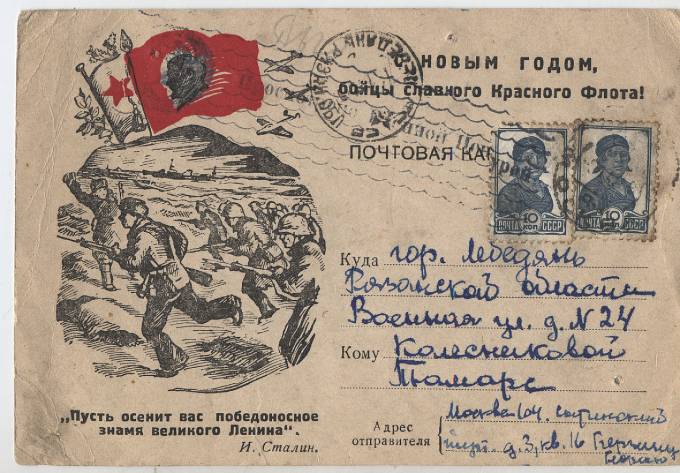 НОВЫМ ГОДОМ,
бойцы славного Красного Флота!
ПОЧТОВАЯ КАР
ПОЧТА 10 КОП СССР
ПОЧТА 10 КОП СССР
Куда гор. Лебедянь
Рязанской области
Военная ул. д. N 24
Кому Колесниковой
Тамаре
„Пусть осенит вас победоносное
знамя великого Ленина".
И. Сталин.
Адрес
отправителя
Москва 104.
д. 3, кв. 16